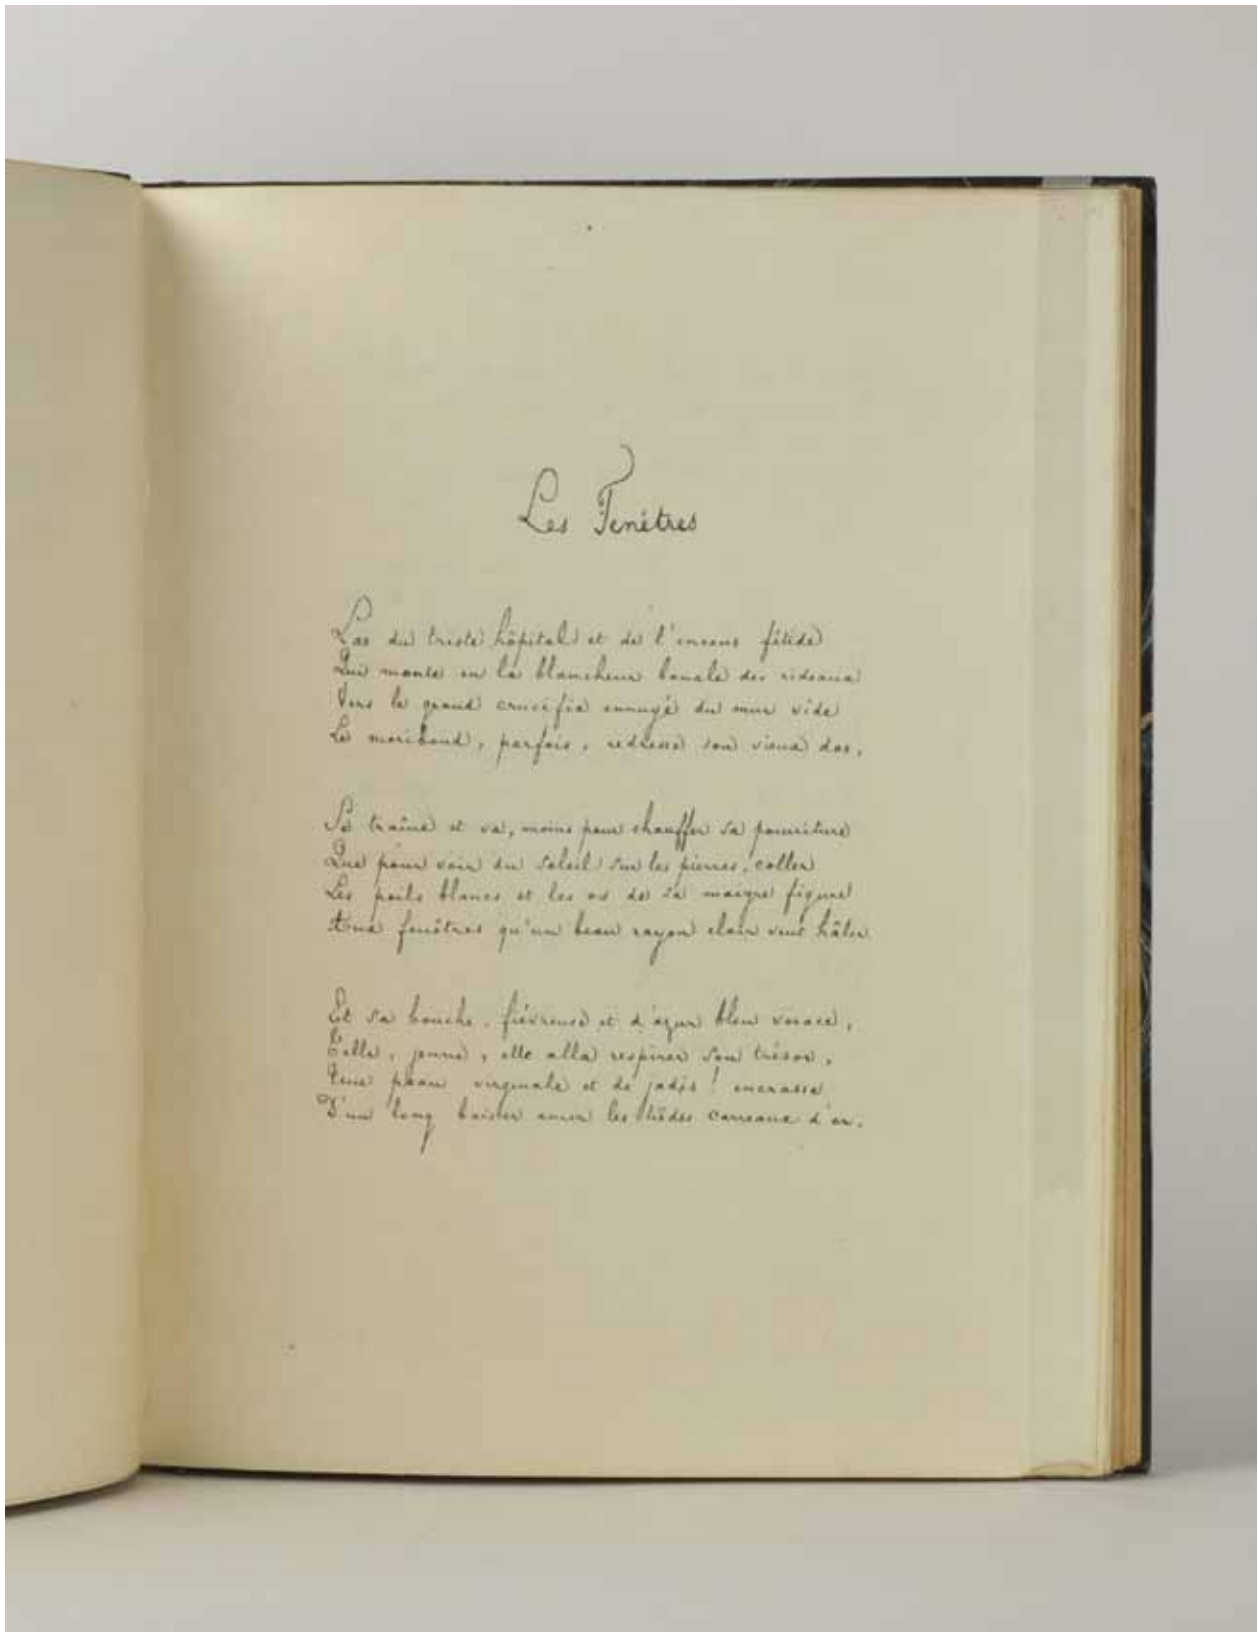 Les Fenêtres
Las du triste hôpital et de l'encens fétide
Qui monte en la blancheur banale des rideaux
Vers le grand crucifix ennuyé du mur vide
Le moribond, parfois, redresse son vieux dos,
Se traîne et va, moins pour chauffer sa pourriture
Que pour voir du soleil sur les pierres, coller
Les poils blancs et les os de sa maigre figure
Aux fenêtres qu'un beau rayon clair veut hâler.
Et sa bouche, fiévreuse et d'azur bleu vorace,
Telle, jeune, elle alla respirer son trésor,
Une peau virginale et de jadis ! encrasse
D'un long baiser amer les tièdes carreaux d'or.